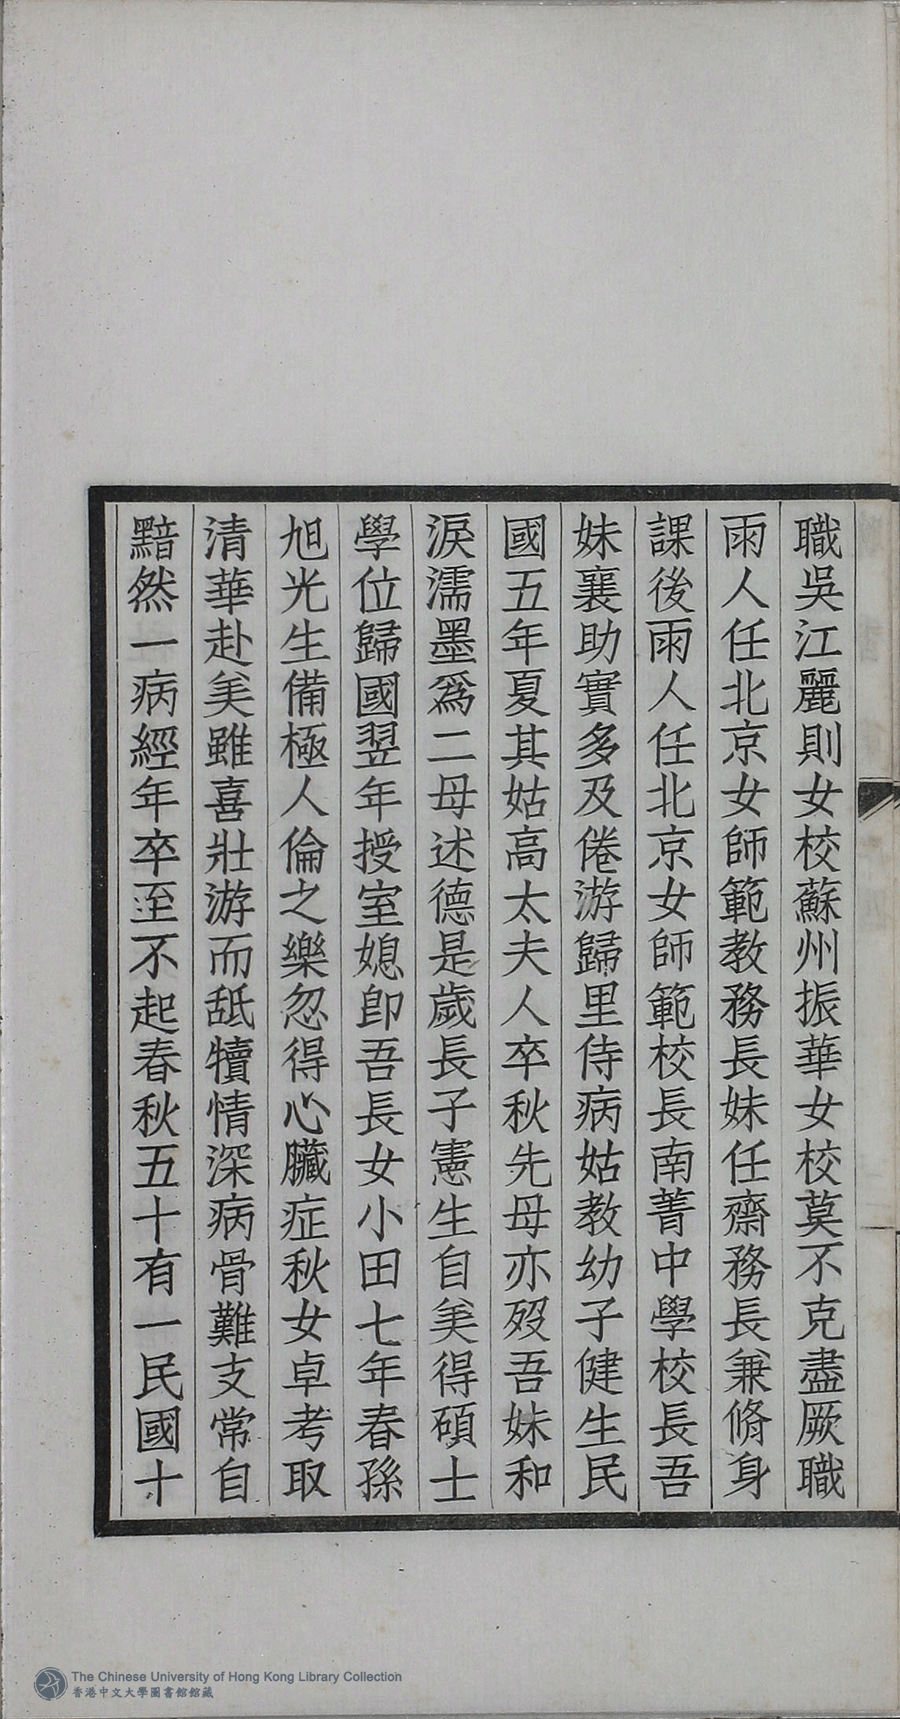 職吳江麗則女校蘇州振華女校莫不克盡厥職
雨人任北京女師範教務長妹任齋務長兼脩身
課後雨人任北京女師範校長南菁中學校長吾
妹襄助實多及倦游歸里侍病姑教幼子健生民
國五年夏其姑高太夫人卒秋先母亦歿吾妹和
淚濡墨爲二母述德是歲長子憲生自美得碩士
學位歸國翌年授室媳卽吾長女小田七年春孫
旭光生備極人倫之樂忽得心臟症秋女卓考取
清華赴美雖喜壯游而舐犢情深病骨難支常自
黯然一病經年卒至不起春秋五十有一民國十
The Chinese University of Hong Kong Library Collection
香港中文大學圖書館館藏